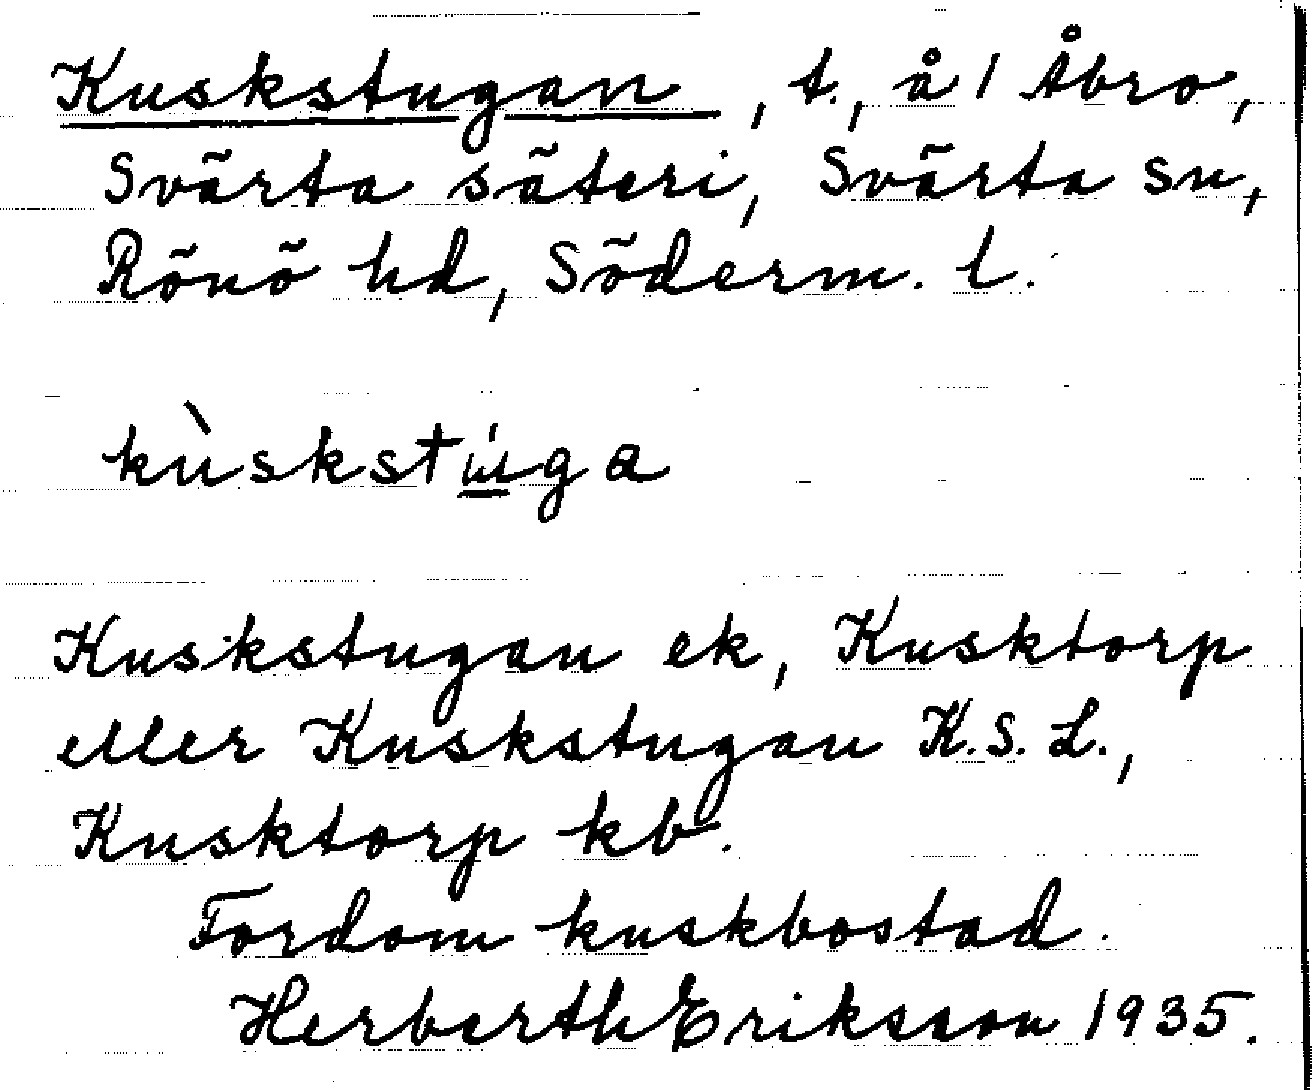 Kuskstugan, t., å 1 Åbro,
Svärta säteri, Svärta sn,
Rönö hd, Söderm. l.
kùskstu̲ga
Kuskstugan ek, Kusktorp
eller Kuskstugan K.S.L.,
Kusktorp kb.
Fordom kuskbostad.
Herberth Eriksson 1935.